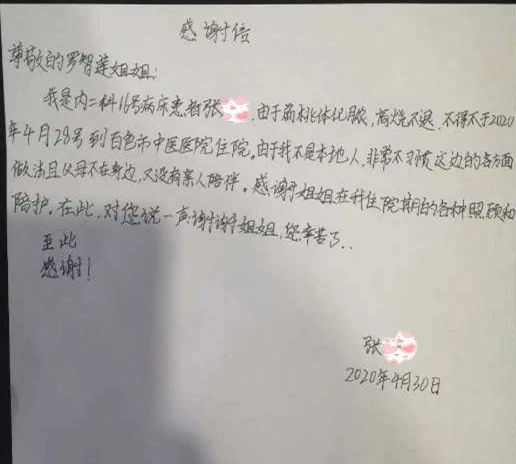 感谢信
尊敬的罗智莲姐姐:
我是内二科16号病床患者张 ,由于扁桃体化脓,高烧不退,不得不于2020
年4月28号到百色市中医医院住院,由于我不是本地人,非常不习惯这边的各方面
做法且父母不在身边,又没有亲人陪伴。感谢姐姐在我住院期间的各种照顾和
陪护,在此,对您说一声谢谢姐姐,您辛苦了..
至此
感谢!
张
2020年4月30日